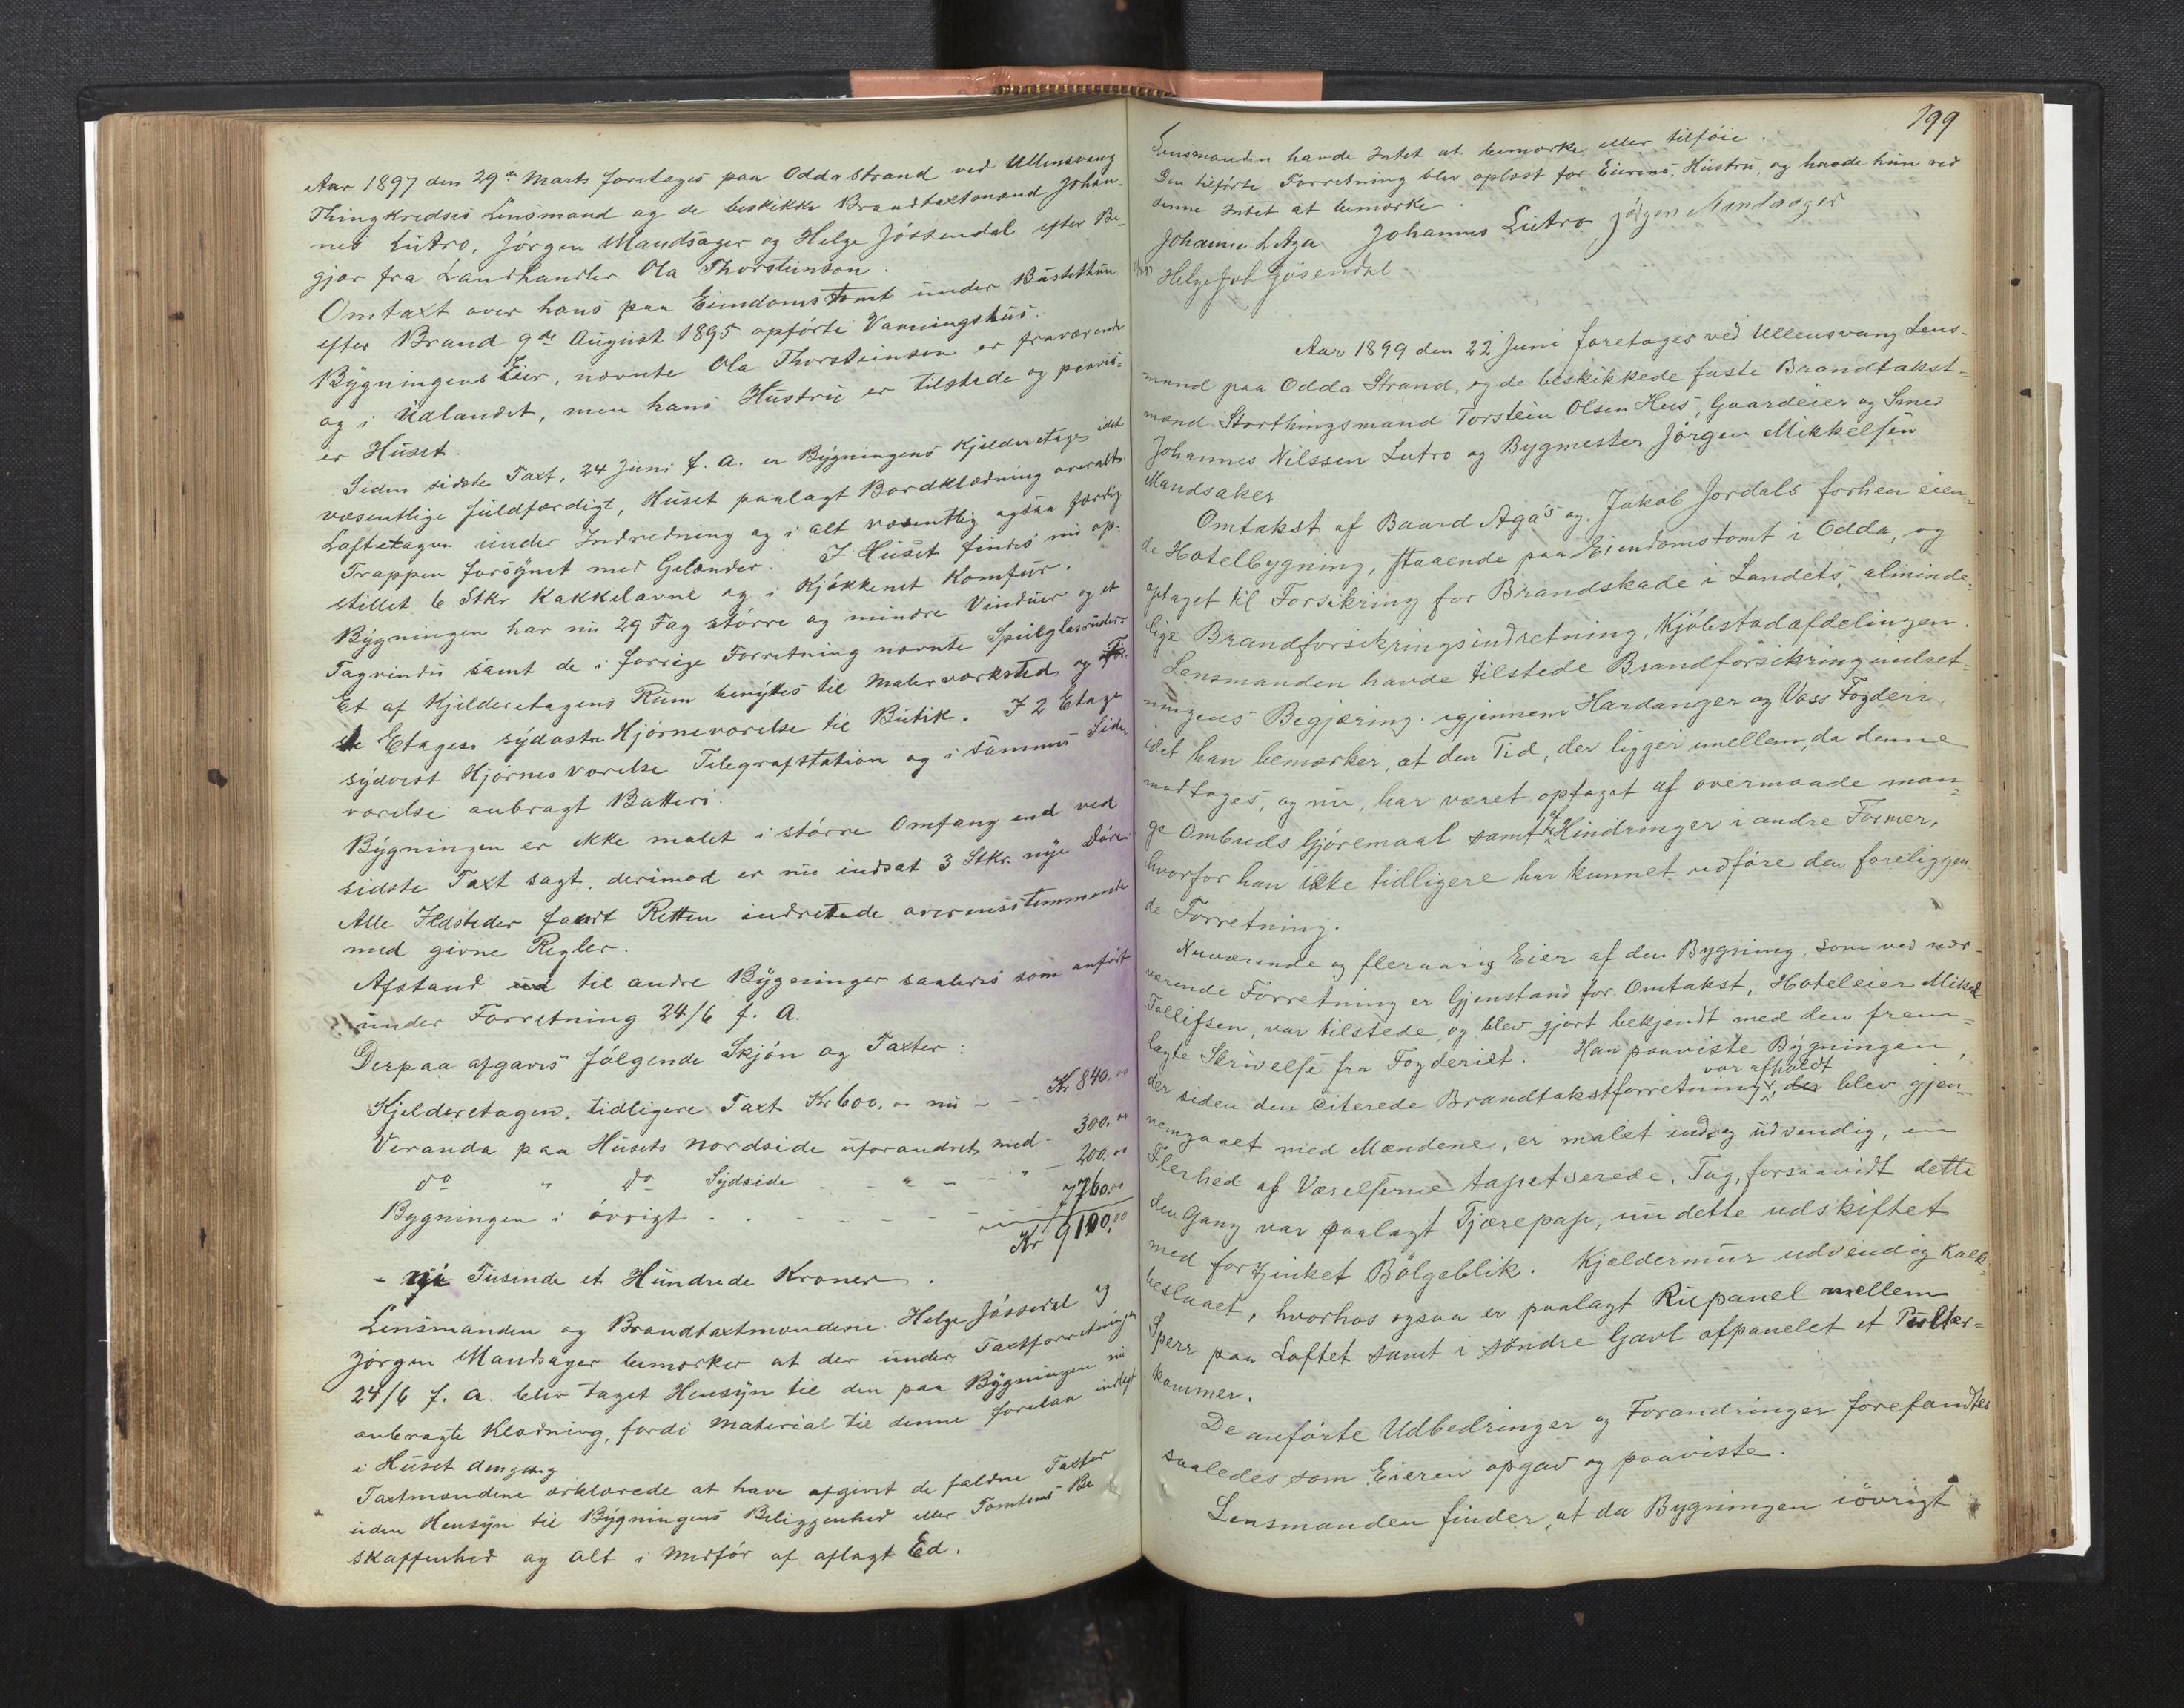 Aar 1897 den 29de Marts foretages paa Odda Strand ved Ullensvang
Thingkredses Lensmand og de beskikke Brandtaxtmænd Johan-
nes Lutro, Jörgen Mandsager og Helge Jössendal efter Be-
gjær fra Landhandler Ola Thorsteinson.
Omtaxt over hans paa Eiendomstomt under Bustethun
efter Brand 9de August 1895 opförte Vaaningshus.
Bygningens Eier, nævnte Ola Thorsteinson er fraværende
og i Udlandet, men hans Hustru er tilstede og paavis-
er Huset.
Siden sidste Taxt, 24 Juni f. A. er Bygningens Kjelderetage idet
væsentlige fuldfærdigt, Huset paalagt Bordklædning overalt.
Loftetagen under Indredning og i alt væsentlig ogsaa færdig
Trappen forsynet med Gelænder. I Huset findes nu op-
stillet 6 Stkr Kakkelovne og i Kjökkenet Komfur.
Bygningen har nu 29 Fag större og mindre Vinduer og et
Tagvindu samt de i forrige Forretning nævnte Speilglasruder.
Et af Kjelderetagens Rum benyttes til Malerværksted og För-
ste Etages sydöstre Hjörneværelse til Butik. I 2 Etage
sydvest Hjörnesværelse Telegrafstation og i sammes Side-
værelse anbragt Batteri.
Bygningen er ikke malet i större Omfang end ved
sidste Taxt sagt, derimod er nu indsat 3 Stkr. nye Döre
Alle Ildsteder fandt Retten indrettede overensstemmende
med givne Regler.
Afstand til andre Bygninger saaledes som anfört
under Forretning 24/6 f. A.
Derpaa afgaves fölgende Skjön og Taxter:
Kjelderetagen, tidligere Taxt Kr 600,00 nu - - - Kr 840.00
Veranda paa Husets Nordside uforandret med - 300.00
do " do Sydside - - " - - - " - 200.00
Bygningen i övrigt - - - - - - - 7760.00
Kr 9100.00
- ni Tusinde et Hundrede Kroner.
Lensmanden og Brandtaxtmændene Helge Jössendal og
Jörgen Mandsager bemærker at der under Taxtforretningen
24/6 f. A. blev taget Hensyn til den paa Bygningen nu
anbragte Klædning, fordi Material til denne forelaa indlagt
i Huset dengang
Taxtmændene erklærede at have afgivet de faldne Taxter
uden Hensyn til Bygningens Beliggenhed eller Tomtens Be
skaffenhed og alt i Medför af aflagt Ed.
199
Lensmanden havde Intet at bemærke eller tilföie.
Den tilförte Forretning blev oplæst for Eierens Hustru, og havde hun ved
denne Intet at bemærke.
Johannes L Aga Johannes Lutro Jörgen Mandsager
Helge Joh Jösendal
Aar 1899 den 22 Juni foretages ved Ullensvang Lens-
mand paa Odda Strand, og de beskikkede faste Brandtakst-
mænd Storthingsmand Torstein Olsen Hus, Gaardeier og Smed
Johannes Nilssen Lutro og Bygmester Jörgen Mikkelsen
Mandsaker
Omtakst af Baard Aga's og Jakob Jordals forhen eien-
de Hotelbygning, staaende paa Eiendomstomt i Odda, og
optaget til Forsikring for Brandskade i Landets alminde-
lige Brandforsikringsindretning, Kjöbstadafdelingen.
Lensmanden havde tilstede Brandforsikringsindret-
ningens Begjæring igjennem Hardanger og Voss Fogderi,
idet han bemærker, at den Tid, der ligger imellem, da denne
modtoges, og nu, har været optaget af overmaade man-
ge Ombuds Gjöremaal samt af Hindringer i andre Former,
hvorfor han ikke tidligere har kunnet udföre den foreliggen
de Forretning.
Nuværende og fleraarig Eier af den Bygning, som ved nær-
værende Forretning er Gjenstand for Omtakst, Hoteleier Mikal
Tollefsen, var tilstede og blev gjort bekjendt med den frem-
lagte Skrivelse fra Fogderiet. Han paaviste Bygningen,
var afholdt
der siden den citerede Brandtakstforretning, der blev gjen-
nemgaaet med Mændene, er malet ind- og udvendig, en
Flerhed af Værelserne tapetserede. Tag, forsaavidt dette
den Gang var paalagt Tjærepap, nu dette udskiftet
med forzinket Bölgeblik. Kjældermur udvendig kalk-
beslaaet, hvorhos ogsaa er paalagt Rupanel mellem
Sperr paa Loftet samt i söndre Gavl afpanelet et Pulter-
kammer.
De anförte Udbedringer og Forandringer forefandtes
saaledes som Eieren opgav og paaviste.
Lensmanden finder, at da Bygningen iövrigt